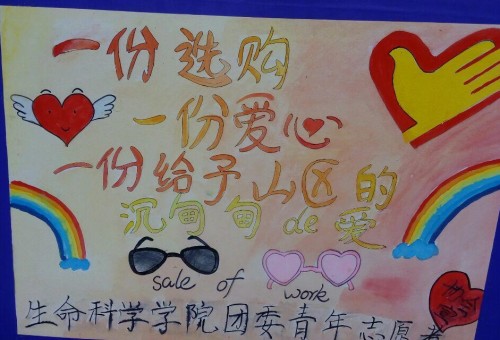 一份选购
一份爱心
一份给予山区的
沉甸甸de爱
sale of work
生命科学学院团委青年志愿者